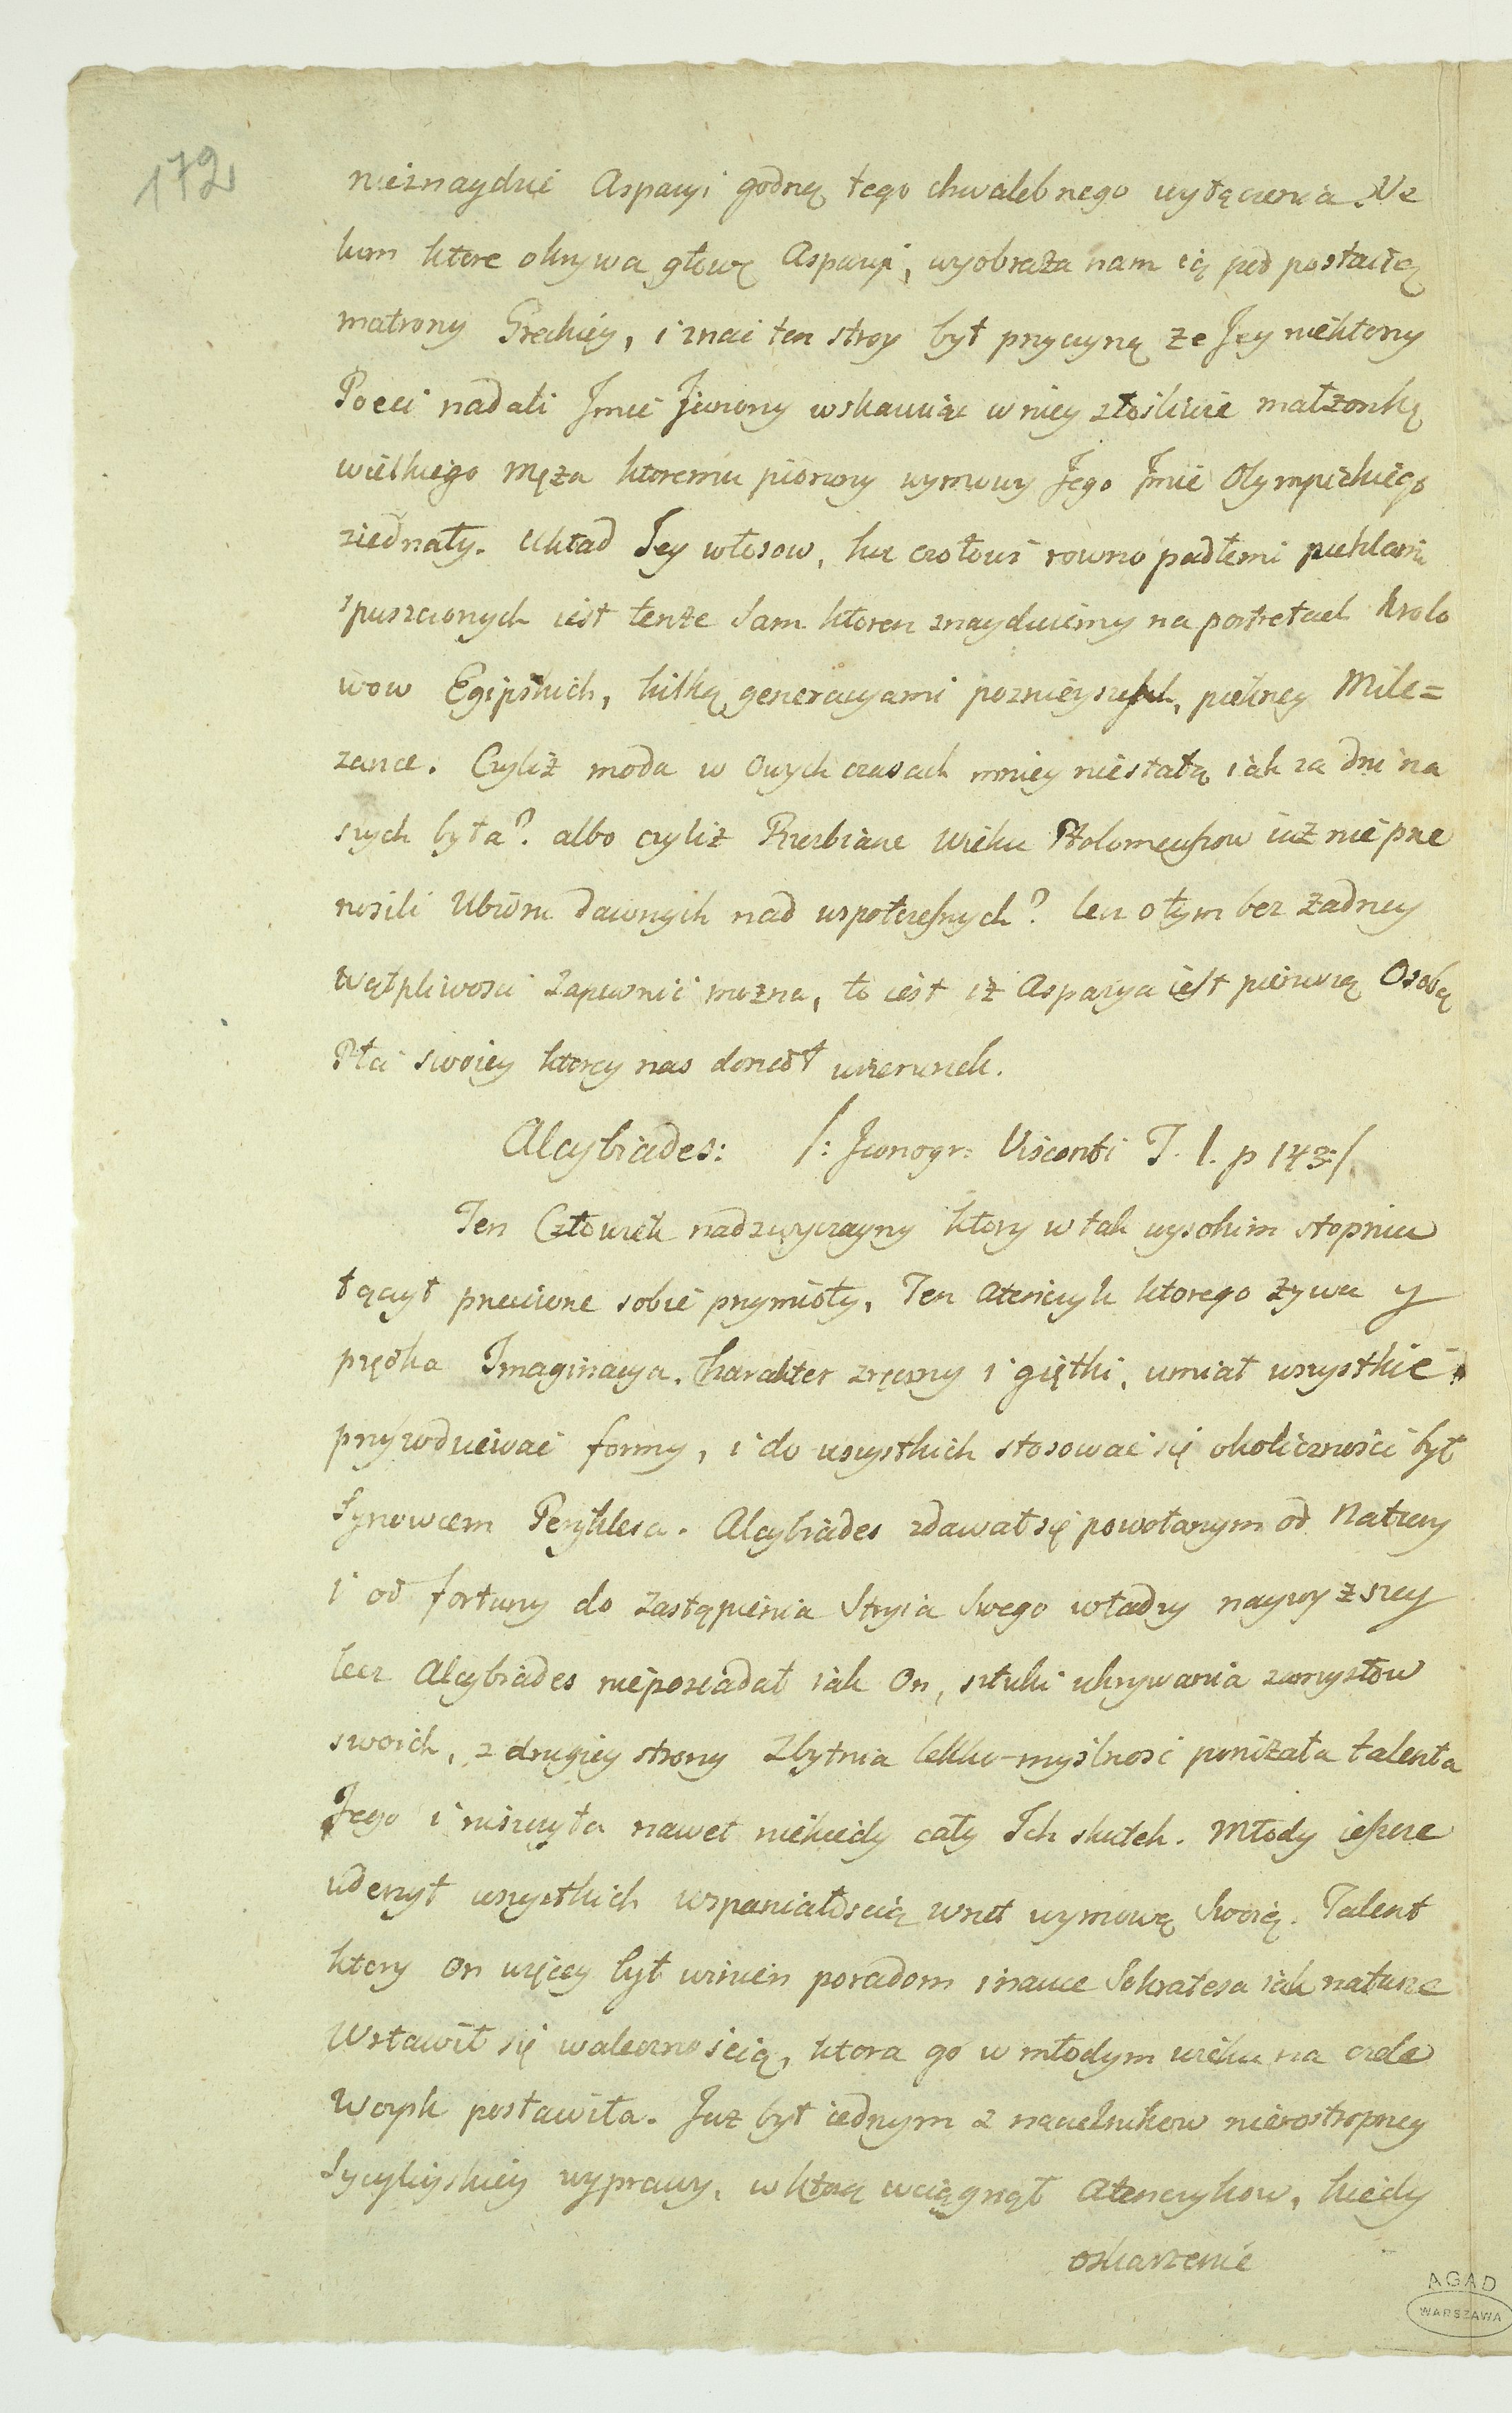 172
nieznaydzie Aspazyi godną tego chwalebnego wyłączenia. Ve
lum ktore okrywa głowę Aspazyi, wyobraża nam ią pod postacią
matrony Greckiey, i znać ten stroy był przyczyną że Jey niektorzy
Poeci nadali Jmie Junony wskazuiąc w niey złośliwie małżonkę
wielkiego Męża ktoremu pioruny wymowy Jego Jmie Olympickiego
ziednały. Układ Jey włosow, ku czołowi rowno padłemi puklami
spuszczonych iest tenże sam ktoren znayduiemy na portretach Krolo
wow Egipskich, kilką generacyami poznieyszych, piękney Mile=
zance. Czyliż moda w owych czasach mniey niestałą iak za dni na
szych była? albo czyliż Rzezbiarze wieku Ptolomeuszow iuż nie prze
nosili Ubioru dawnych nad wspołczesnych? lecz o tym bez żadney
wątpliwosci zapewnić można, to iest iż Aspazya iest pierwszą Osobą
Płci swoiey ktorey nas doniosł wizerunek.
Alcybiades: /: Jconogr: Visconti T. 1. p 143:/
Ten Człowiek nadzwyczayny ktory w tak wysokim stopniu
łączył przeciwne sobie przymioty, Ten Atenczyk ktorego żywa y
prędka Imaginacya, Charakter zręczny i giętki, umiał wszystkie
przywdziewać formy, i do wszystkich stosować się okoliczności był
Synowcem Peryklesa. Alcybiades zdawał się powołanym od Natury
i od fortuny do zastąpienia Stryia Swego władzy naywyższey
lecz Alcybiades nieposiadał iak On, sztuki ukrywania zamysłow
swoich, z drugiey strony zbytnia lekko-myślność poniżała talenta
Jego i niszczyła nawet niekiedy cały Ich skutek. Młody ieszcze
uderzył wszystkich wspaniałoscią wnet wymową Swoią. Talent
ktory on więcey był winien poradom i nauce Sokratesa iak naturze
Wsławił się walecznością, ktora go w młodym wieku na czele
Woysk postawiła. Juz był iednym z naczelnikow nierostropney
Sycyliyskiey wyprawy, w ktorą wciągnął Atenczykow, kiedy
oskarzenie
AGAD
WARSZAWA